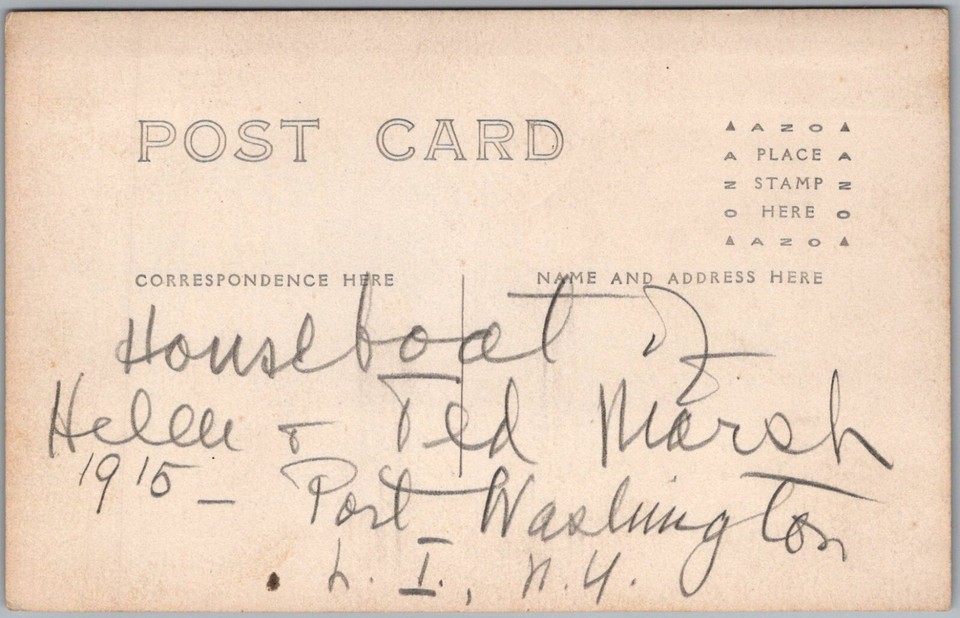 POST CARD
▲ A Z O ▲
A PLACE A
Z STAMP Z
O HERE O
▲ A Z O ▲
CORRESPONDENCE HERE
NAME AND ADDRESS HERE
Houseboat of
Helen + Ted Marsh
1915 - Port Washington
L. I., N.Y.